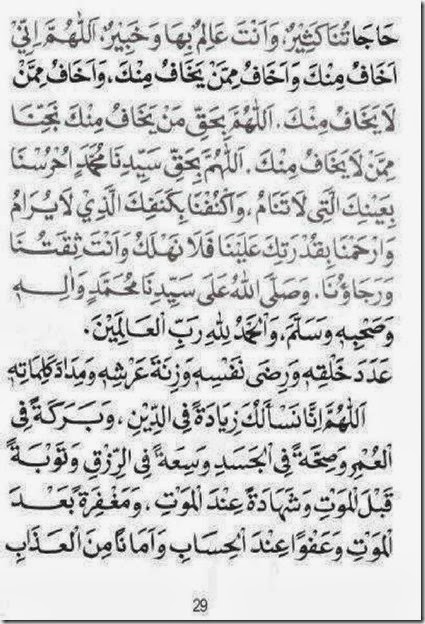 حَاجَاتُنَا كَثِيْرٌ وَاَنْتَ عَالِمٌ بِهَا وَخَبِيْرٌ اَللّٰهُمَّ اِنِّيْ
اَخَافُ مِنْكَ وَاَخَافُ مِمَّنْ يَخَافُ مِنْكَ، وَاَخَافُ مِمَّنْ
لَا يَخَافُ مِنْكَ. اَللّٰهُمَّ بِحَقِّ مَنْ يَخَافُ مِنْكَ نَجِّنَا
مِمَّنْ لَا يَخَافُ مِنْكَ. اَللّٰهُمَّ بِحَقِّ سَيِّدِنَا مُحَمَّدٍ اُحْرُسْنَا
بِعَيْنِكَ الَّتِى لَا تَنَامُ، وَاكْنُفْنَا بِكَنَفِكَ الَّذِيْ لَا يُرَامُ
وَارْحَمْنَا بِقُدْرَتِكَ عَلَيْنَا فَلَا نَهْلَكُ وَاَنْتَ ثِقَتُنَا
وَرَجَاؤُنَا. وَصَلَّى اللّٰهُ عَلَى سَيِّدِنَا مُحَمَّدٍ وَاٰلِهِ
وَصَحْبِهِ وَسَلَّمَ، وَالْحَمْدُ لِلّٰهِ رَبِّ الْعَالَمِيْنَ.
عَدَدَ خَلْقِهِ وَرِضَى نَفْسِهِ وَزِنَةَ عَرْشِهِ وَمِدَادَ كَلِمَاتِهِ
اَللّٰهُمَّ اِنَّا نَسْأَلُكَ زِيَادَةً فِى الدِّيْنِ، وَبَرَكَةً فِى
الْعُمْرِ وَصِحَّةً فِى الْجَسَدِ وَسِعَةً فِى الرِّزْقِ وَتَوْبَةً
قَبْلَ الْمَوْتِ وَشَهَادَةً عِنْدَ الْمَوْتِ، وَمَغْفِرَةً بَعْدَ
الْمَوْتِ وَعَفْوًا عِنْدَ الْحِسَابِ وَاَمَانًا مِنَ الْعَذَابِ
29